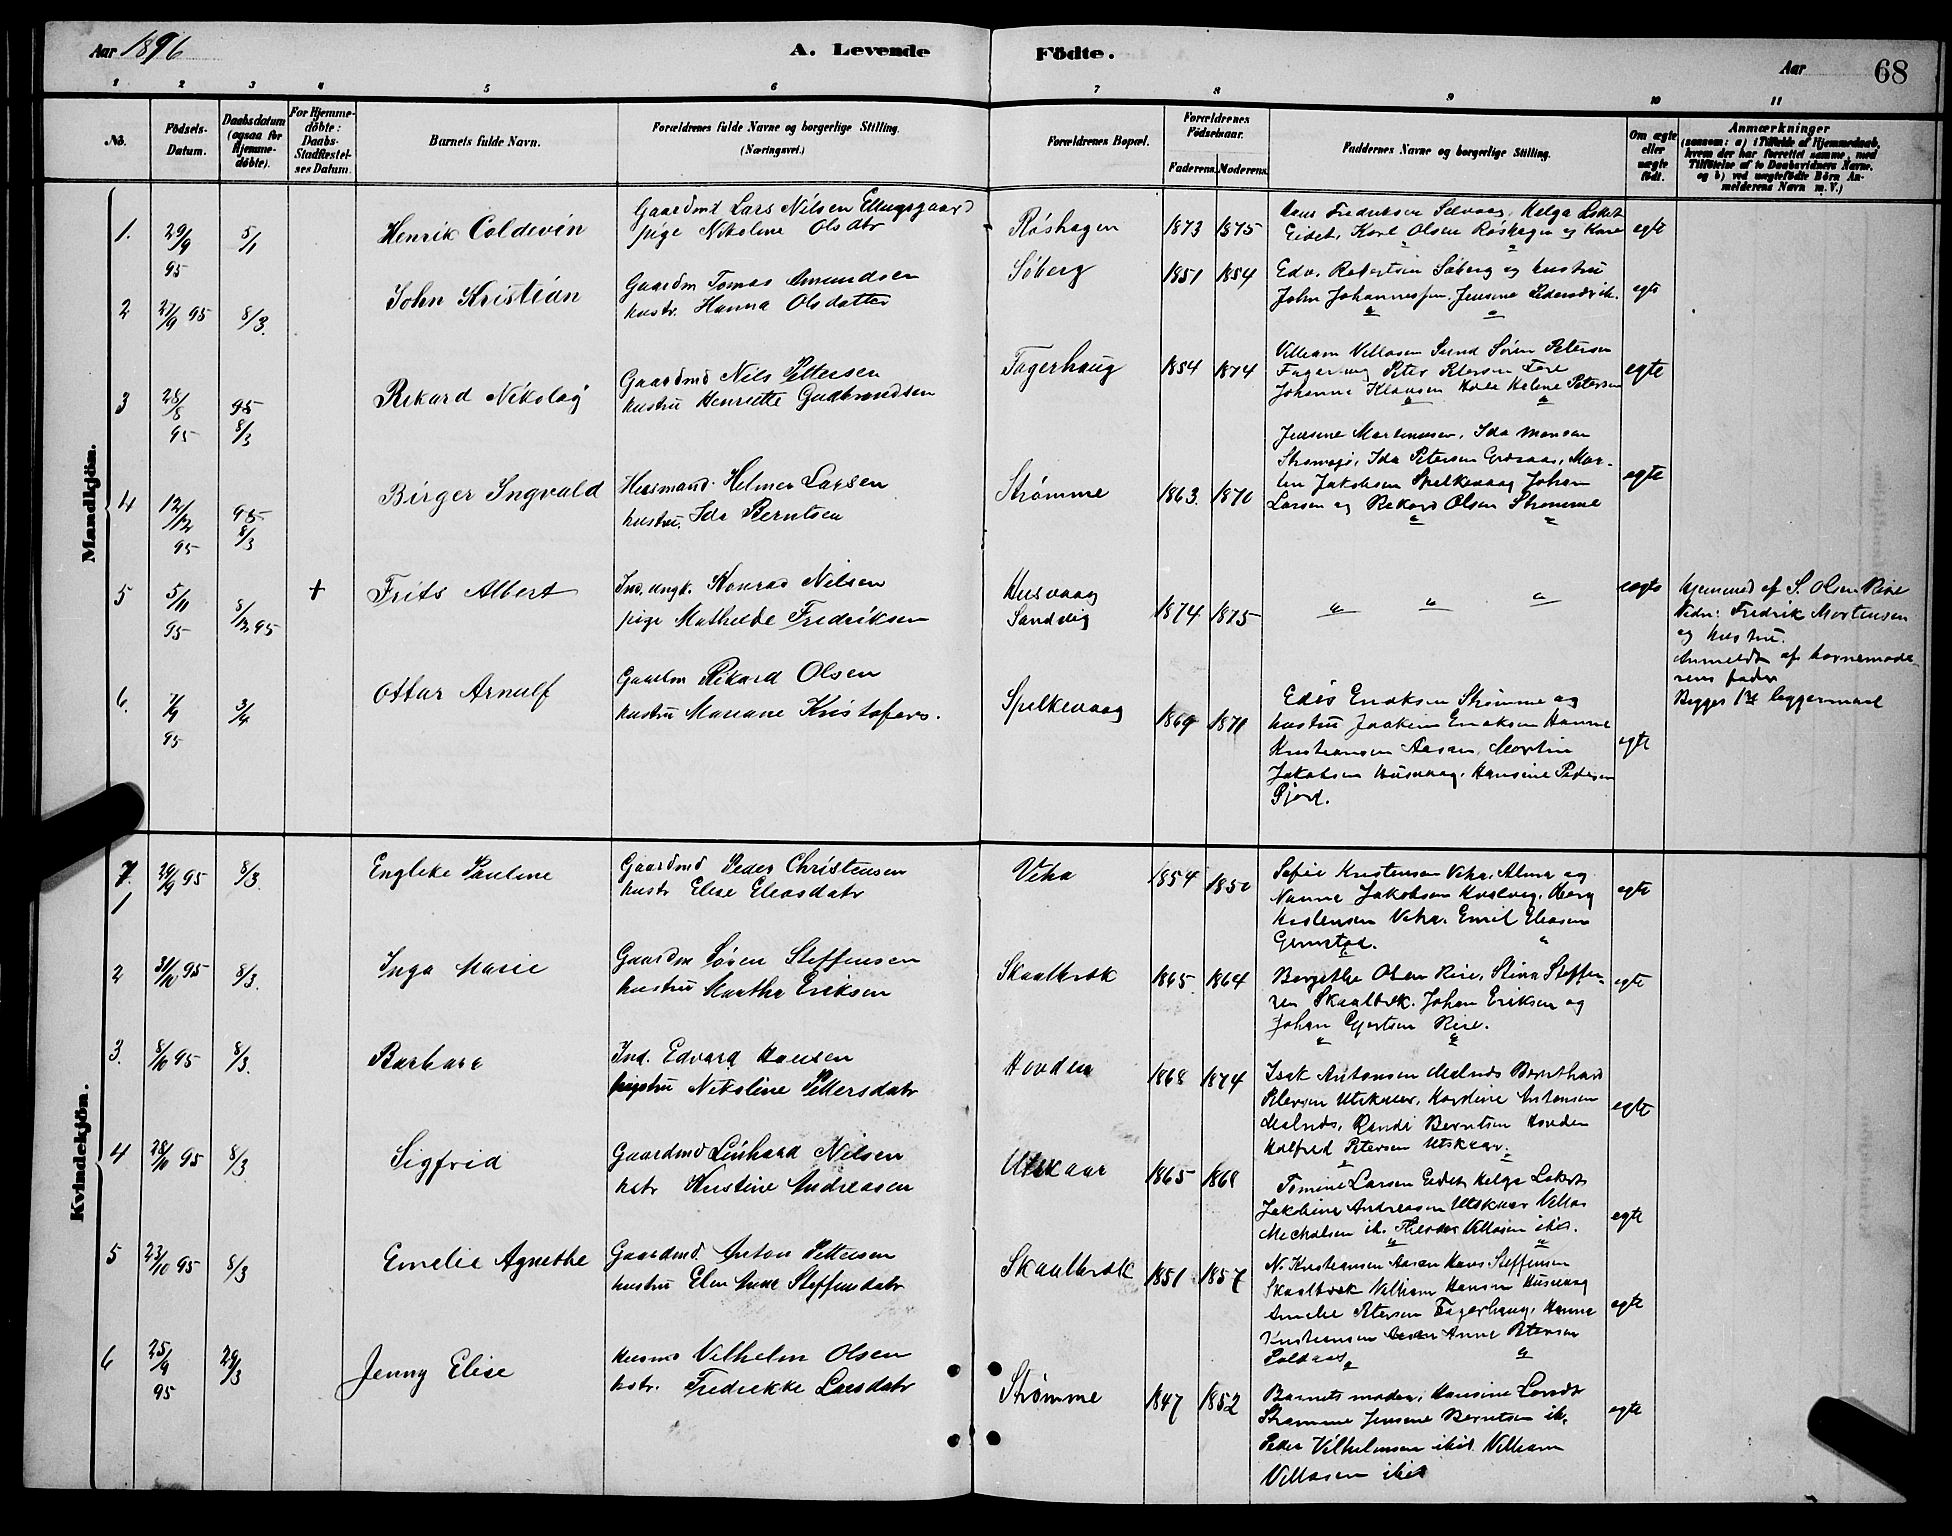 Aar 1896
A. Levende Födte.
Aar
68
1 2 3 4 5 6 7 8 9 10 11
No.
Födsels-Datum.
Daabsdatum (ogsaa for Hjemme-döbte).
For Hjemme-döbte: Daabs-Stadfæstel-ses Datum.
Barnets fulde Navn.
Forældrenes fulde Navne og borgerlige Stilling. (Næringsvei.)
Forældrenes Bopæl.
Forældrenes Födselsaar.
Faderens. Moderens.
Faddernes Navne og borgerlige Stilling.
Om ægte eller uægte födt.
Anmærkninger
(saasom: a) i Tilfælde af Hjemmedaab, hvem der har forrettet samme, med Tilföielse af to Daabsvidners Navne, og b) ved uægtefödte Börn An-melderens Navn m. V.)
Mandkjön.
1. 29/9 95 5/1 Henrik Coldevin
Gaardmd Lars Nilsen
pige Nikoline Olsdtr
Røshagen 1873 1875
Hans Fredriksen Selvaag, Helga
Eidet, Karl Olsen Røshagen og egte
2 27/9 95 8/3. John Kristian
Gaardm Tomas Amundsen
hustr. Hanna Olsdatter
Søberg 1851 1854
Edv. Robertsen Søberg og hustru
John Johannessen, Jensine egte
3 28/8 95 95 8/3 Rikard Nikolay
Gaardmd Nils Pettersen
hustru Henriette Gudbrandsen
Fagerhaug 1854 1874
Villiam Villasen Sund Søren Petersen
Fagerhaug Peter Petersen
Johanna Klausen Helene Petersen egte
4 12/12 95 95 8/3 Birger Ingvald
Husmand Helmer Larsen
hustru. Ida Berntsen
Strømme 1863. 1870
Jensine Martinussen, Ida Monsen
Ida Petersen Mar-
tin Jakobsen Spelkevaag Johan
Larsen og Rikard Olsen Strømme egte
5 5/11 95 8/12 95 + Frits Albert
Ind. ungk. Konrad Nilsen
pige Mathilde Fredriksen
Husvaag
Sandvig 1874 1875
uegte
Hjemmed af S. Olsen Rise
Vidn: Fredrik Mortensen
og hustru.
Anmeldt af barnemode-
rens fader
6. 7/9 95 3/4 Ottar Arnulf
Gaardm Rikard Olsen
hustru Mariane Kristofers.
Spelkevaag 1869 1871
Edis Eriksen Strømme og
hustru Joakim Eriksen Hanna
Kristiansen Aasan, Martin
Jakobsen Husvaag, Hansine Pedersen
Fjord. egte
Kvindekjön.
7. 1 29/9 95 8/3. Englike Pauline
Gaardmd Peder Christensen
hustr Elise Eliasdatr
Vika 1854 1850
Sofie Kristensen Vika, Alma og
Nanna Jakobsen
Kristensen Vika. Emil Eliasen
Grimstad. egte
2 31/10 95 8/3. Inga Marie
Gaardm Søren Steffensen
hustru Martha Eriksen
Skaalbrok 1865 1864
Bergithe Olsen Rise, Stina Steffen-
sen Skaalbrok. Johan Eriksen og
Johan Gjertsen Rise. egte
3. 8/10 95 8/3. Barbara
Ind. Edvard Hansen
hustru Nikoline Pettersdatr
Hovden 1868 1874
Isak Antonsen Malnes Bernthard
Petersen Utskaar, Karoline Antonsen
Malnes, Randi Berntsen Hovden
Halfred Petersen Utskaar. egte
4 28/11 95 8/3 Sigfrid
Gaardmd Linhard Nilsen
hstr Kristine Andreasen
Utskaar 1865 1868
Tomine Larsen Eidet Helga
Jakobine Andreasen Utskaar Villas
Mechalsen ib. Villasen ibid. egte
5 23/10 95 8/3 Emelie Agnethe
Gaardmd Anton Pettersen
hustru Elen Anne Steffensdatr
Skaalbrok 1851 1857
N. Kristiansen Aasan Hans Steffensen
Skaalbrok Villiam Hansen Husvaag
Amelie Petersen Fagerhaug, Hanna
Kristiansen Aasan Anne Petersen egte
6 25/9 95 29/3 Jenny Elise
Husmd Vilhelm Olsen
hstr. Fredrikke Larsdatr
Strømme 1847 1852
Barnets moder, Hansine
Strømme Jensine Berntsen ib.
Peder Vilhelmsen ibid. Villiam
Villasen ibid egte